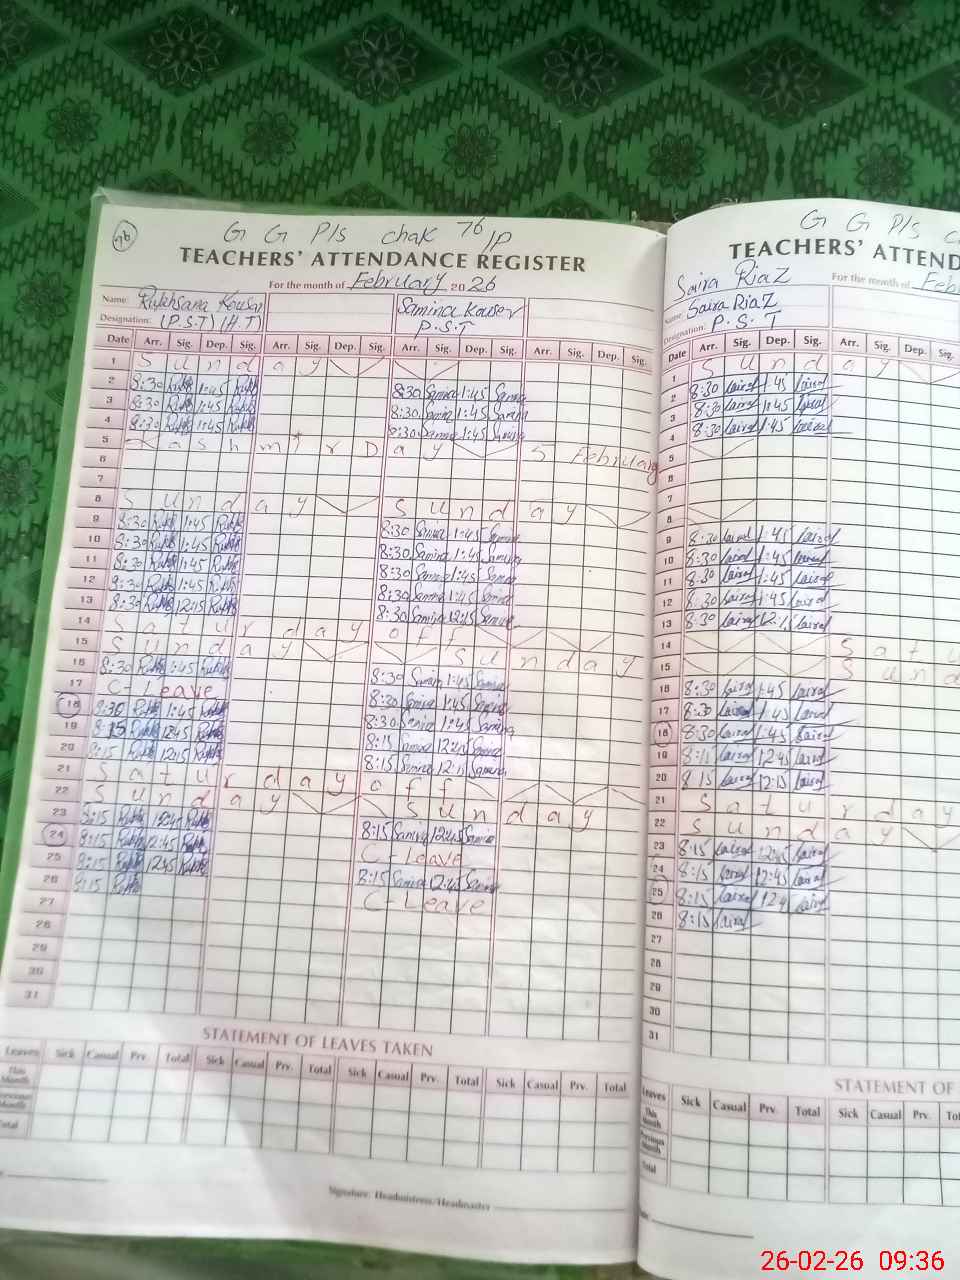 76
G G P/S chak 76/P
TEACHERS' ATTENDANCE REGISTER
For the month of February 2026
Name: Rukhsana Kousar Samina Kouser
Designation: (P.S.T) (H.T) P.S.T
Date Arr. Sig. Dep. Sig. Arr. Sig. Dep. Sig. Arr. Sig. Dep. Sig. Arr. Sig. Dep. Sig.
1 Sunday
2 8:30 1:45 8:30 Samina 1:45 Samina
3 8:30 1:45 8:30 Samina 1:45 Samina
4 8:30 1:45 8:30 Samina 1:45 Samina
5 Kashmir Day 5 February
6
7
8 Sunday Sunday
9 8:30 1:45 8:30 Samina 1:45 Samina
10 8:30 1:45 8:30 Samina 1:45 Samina
11 8:30 1:45 8:30 Samina 1:45 Samina
12 8:30 1:45 8:30 Samina 1:45 Samina
13 8:30 12:15 8:30 Samina 12:15 Samina
14 Saturday off
15 Sunday Sunday
16 8:30 1:45 8:30 Samina 1:45 Samina
17 C-Leave 8:30 Samina 1:45 Samina
18 8:30 1:45 8:30 Samina 1:45 Samina
19 8:15 12:45 8:15 Samina 12:45 Samina
20 8:15 12:15 8:15 Samina 12:15 Samina
21 Saturday off
22 Sunday Sunday
23 8:15 12:45 8:15 Samina 12:45 Samina
24 8:15 12:45 C-Leave
25 8:15 12:45 8:15 Samina 12:45 Samina
26 8:15 C-Leave
27
28
29
30
31
STATEMENT OF LEAVES TAKEN
Leaves Sick Casual Prv. Total Sick Casual Prv. Total Sick Casual Prv. Total Sick Casual Prv. Total
This Month
Previous Month
Total
Signature: Headmistress/Headmaster
G G P/S
TEACHERS' ATTEND
Saira Riaz
For the month of Feb
Name: Saira Riaz
Designation: P.S.T
Date Arr. Sig. Dep. Sig. Arr. Sig. Dep. Sig.
1 Sunday
2 8:30 1:45
3 8:30 1:45
4 8:30 1:45
5
6
7
8
9 8:30 1:45
10 8:30 1:45
11 8:30 1:45
12 8:30 1:45
13 8:30 12:15
14 Satu
15 Sund
16 8:30 1:45
17 8:30 1:45
18 8:30 1:45
19 8:15 12:45
20 8:15 12:15
21 Saturday
22 Sunday
23 8:15 12:45
24 8:15 12:45
25 8:15 12:4
26 8:15
27
28
29
30
31
STATEMENT OF
Leaves Sick Casual Prv. Total Sick Casual Prv.
This Month
Previous Month
Total
26-02-26 09:36